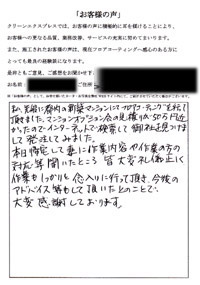 「お客様の声」
クリーンエクスプレスでは、お客様の声に積極的に耳を傾けることにより、
お客様への更なる品質、業務改善、サービスの充実に努めてまいります。
また、施工されたお客様の声は、現在フロアコーティングへ感心のある方に
とっても良の経験談になります。
是非ともご意見、ご感想をお聞かせ下さい
お名前
ご住所
私、実際に都内の新築マンションにてフロアコーティングを
頂きました。マンションオプション会の見積りが50万円近く
かかったのでインターネットで検索して御社を見つけまし
て発注してみました。
本日帰宅して妻に作業内容や作業の方の
対応等聞いたところ皆大変礼儀正しく
作業もしっかりと念入りに行って頂き、今後の
アドバイス等もして頂いたとのことで
大変感謝しております。